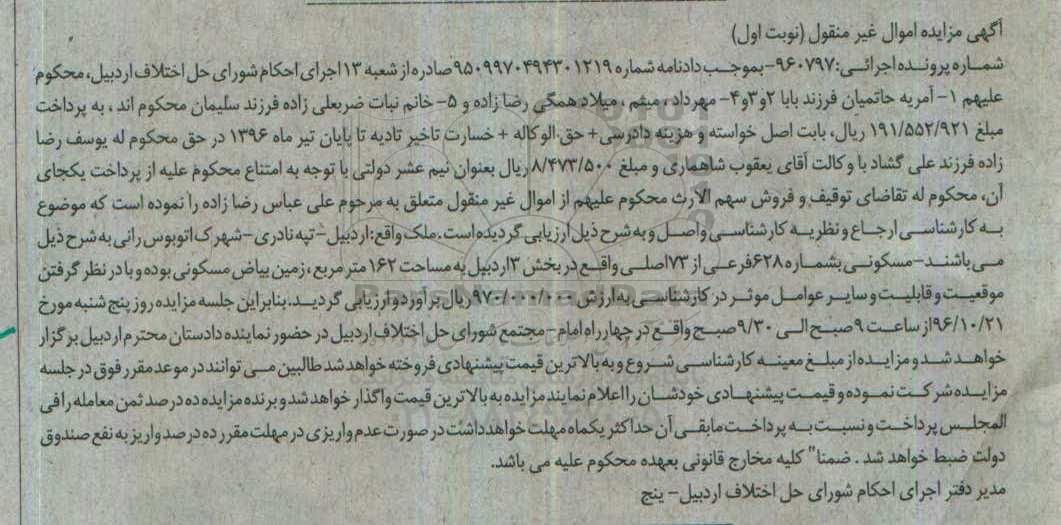 آگهی مزایده اموال غیر منقول (نوبت اول)
شماره پرونده اجرائی: ۹۶۰۷۹۷- بموجب دادنامه شماره ۹۵۰۹۹۷۰۴۹۴۳۰۱۲۱۹ صادره از شعبه ۱۳ اجرای احکام شورای حل اختلاف اردبیل، محکوم
علیهم ۱- آمریه حاتمیان فرزند بابا ۲و۳و۴- مهرداد، میثم، میلاد همگی رضا زاده و ۵- خانم نبات ضربعلی زاده فرزند سلیمان محکوم اند، به پرداخت
مبلغ ۱۹۱/۵۵۲/۹۲۱ ریال، بابت اصل خواسته و هزینه دادرسی + حق الوکاله + خسارت تاخیر تادیه تا پایان تیر ماه ۱۳۹۶ در حق محکوم له یوسف رضا
زاده فرزند علی گشاد با وکالت آقای یعقوب شاهماری و مبلغ ۸/۴۷۳/۵۰۰ ریال بعنوان نیم عشر دولتی با توجه به امتناع محکوم علیه از پرداخت یکجای
آن، محکوم له تقاضای توقیف و فروش سهم الارث محکوم علیهم از اموال غیر منقول متعلق به مرحوم علی عباس رضا زاده را نموده است که موضوع
به کارشناسی ارجاع و نظریه کارشناسی واصل و به شرح ذیل ارزیابی گردیده است. ملک واقع: اردبیل - تپه نادری - شهرک اتوبوس رانی به شرح ذیل
می باشند - مسکونی بشماره ۶۲۸ فرعی از ۷۳ اصلی واقع در بخش ۳ اردبیل به مساحت ۱۶۲ متر مربع، زمین بیاض مسکونی بوده و با در نظر گرفتن
موقعیت و قابلیت و سایر عوامل موثر در کارشناسی به ارزش ۹۷۰/۰۰۰/۰۰۰ ریال برآورد و ارزیابی گردید. بنابراین جلسه مزایده روز پنج شنبه مورخ
۹۶/۱۰/۲۱ از ساعت ۹ صبح الی ۹/۳۰ صبح واقع در چهارراه امام - مجتمع شورای حل اختلاف اردبیل در حضور نماینده دادستان محترم اردبیل برگزار
خواهد شد و مزایده از مبلغ معینه کارشناسی شروع و به بالاترین قیمت پیشنهادی فروخته خواهد شد طالبین می توانند در موعد مقرر فوق در جلسه
مزایده شرکت نموده و قیمت پیشنهادی خودشان را اعلام نمایند مزایده به بالاترین قیمت واگذار خواهد شد و برنده مزایده ده درصد ثمن معامله را فی
المجلس پرداخت و نسبت به پرداخت مابقی آن حداکثر یکماه مهلت خواهد داشت در صورت عدم واریزی در مهلت مقرر ده درصد واریز به نفع صندوق
دولت ضبط خواهد شد. ضمنا" کلیه مخارج قانونی بعهده محکوم علیه می باشد.
مدیر دفتر اجرای احکام شورای حل اختلاف اردبیل - ینج